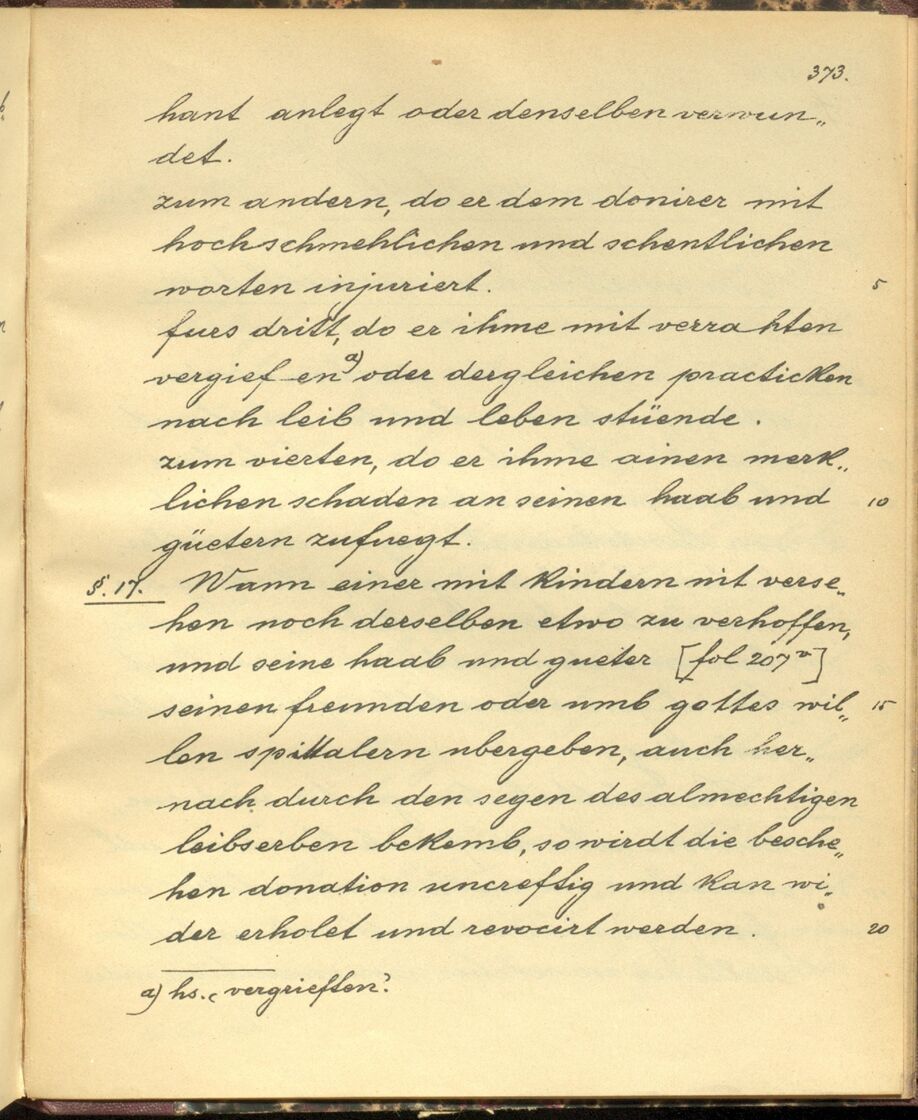 373.
hant anlegt oder denselben verwun„
det.
zum andern, do er dem donirer mit
hochschmehlichen und schentlichen
worten injuriert. 5
furs dritt, do er ihme mit verra hten
vergief en a) oder dergleichen practicken
nach leib und leben stüende.
zum vierten, do er ihme ainen merk„
lichen schaden an seinen haab und 10
güetern zufuegt.
§. 17. Wann einer mit kindern nit verse„
hen noch derselben etwo zu verhoffen,
und seine haab und gueter [fol 207v]
seinen freunden oder umb gottes wil„ 15
len spittalern ubergeben, auch her„
nach durch den segen des almechtigen
leibserben bekemb, so wirdt die besche„
hen donation uncreftig und kan wi„
der erholet und revocirt werden. 20
a) hs. vergrieften?